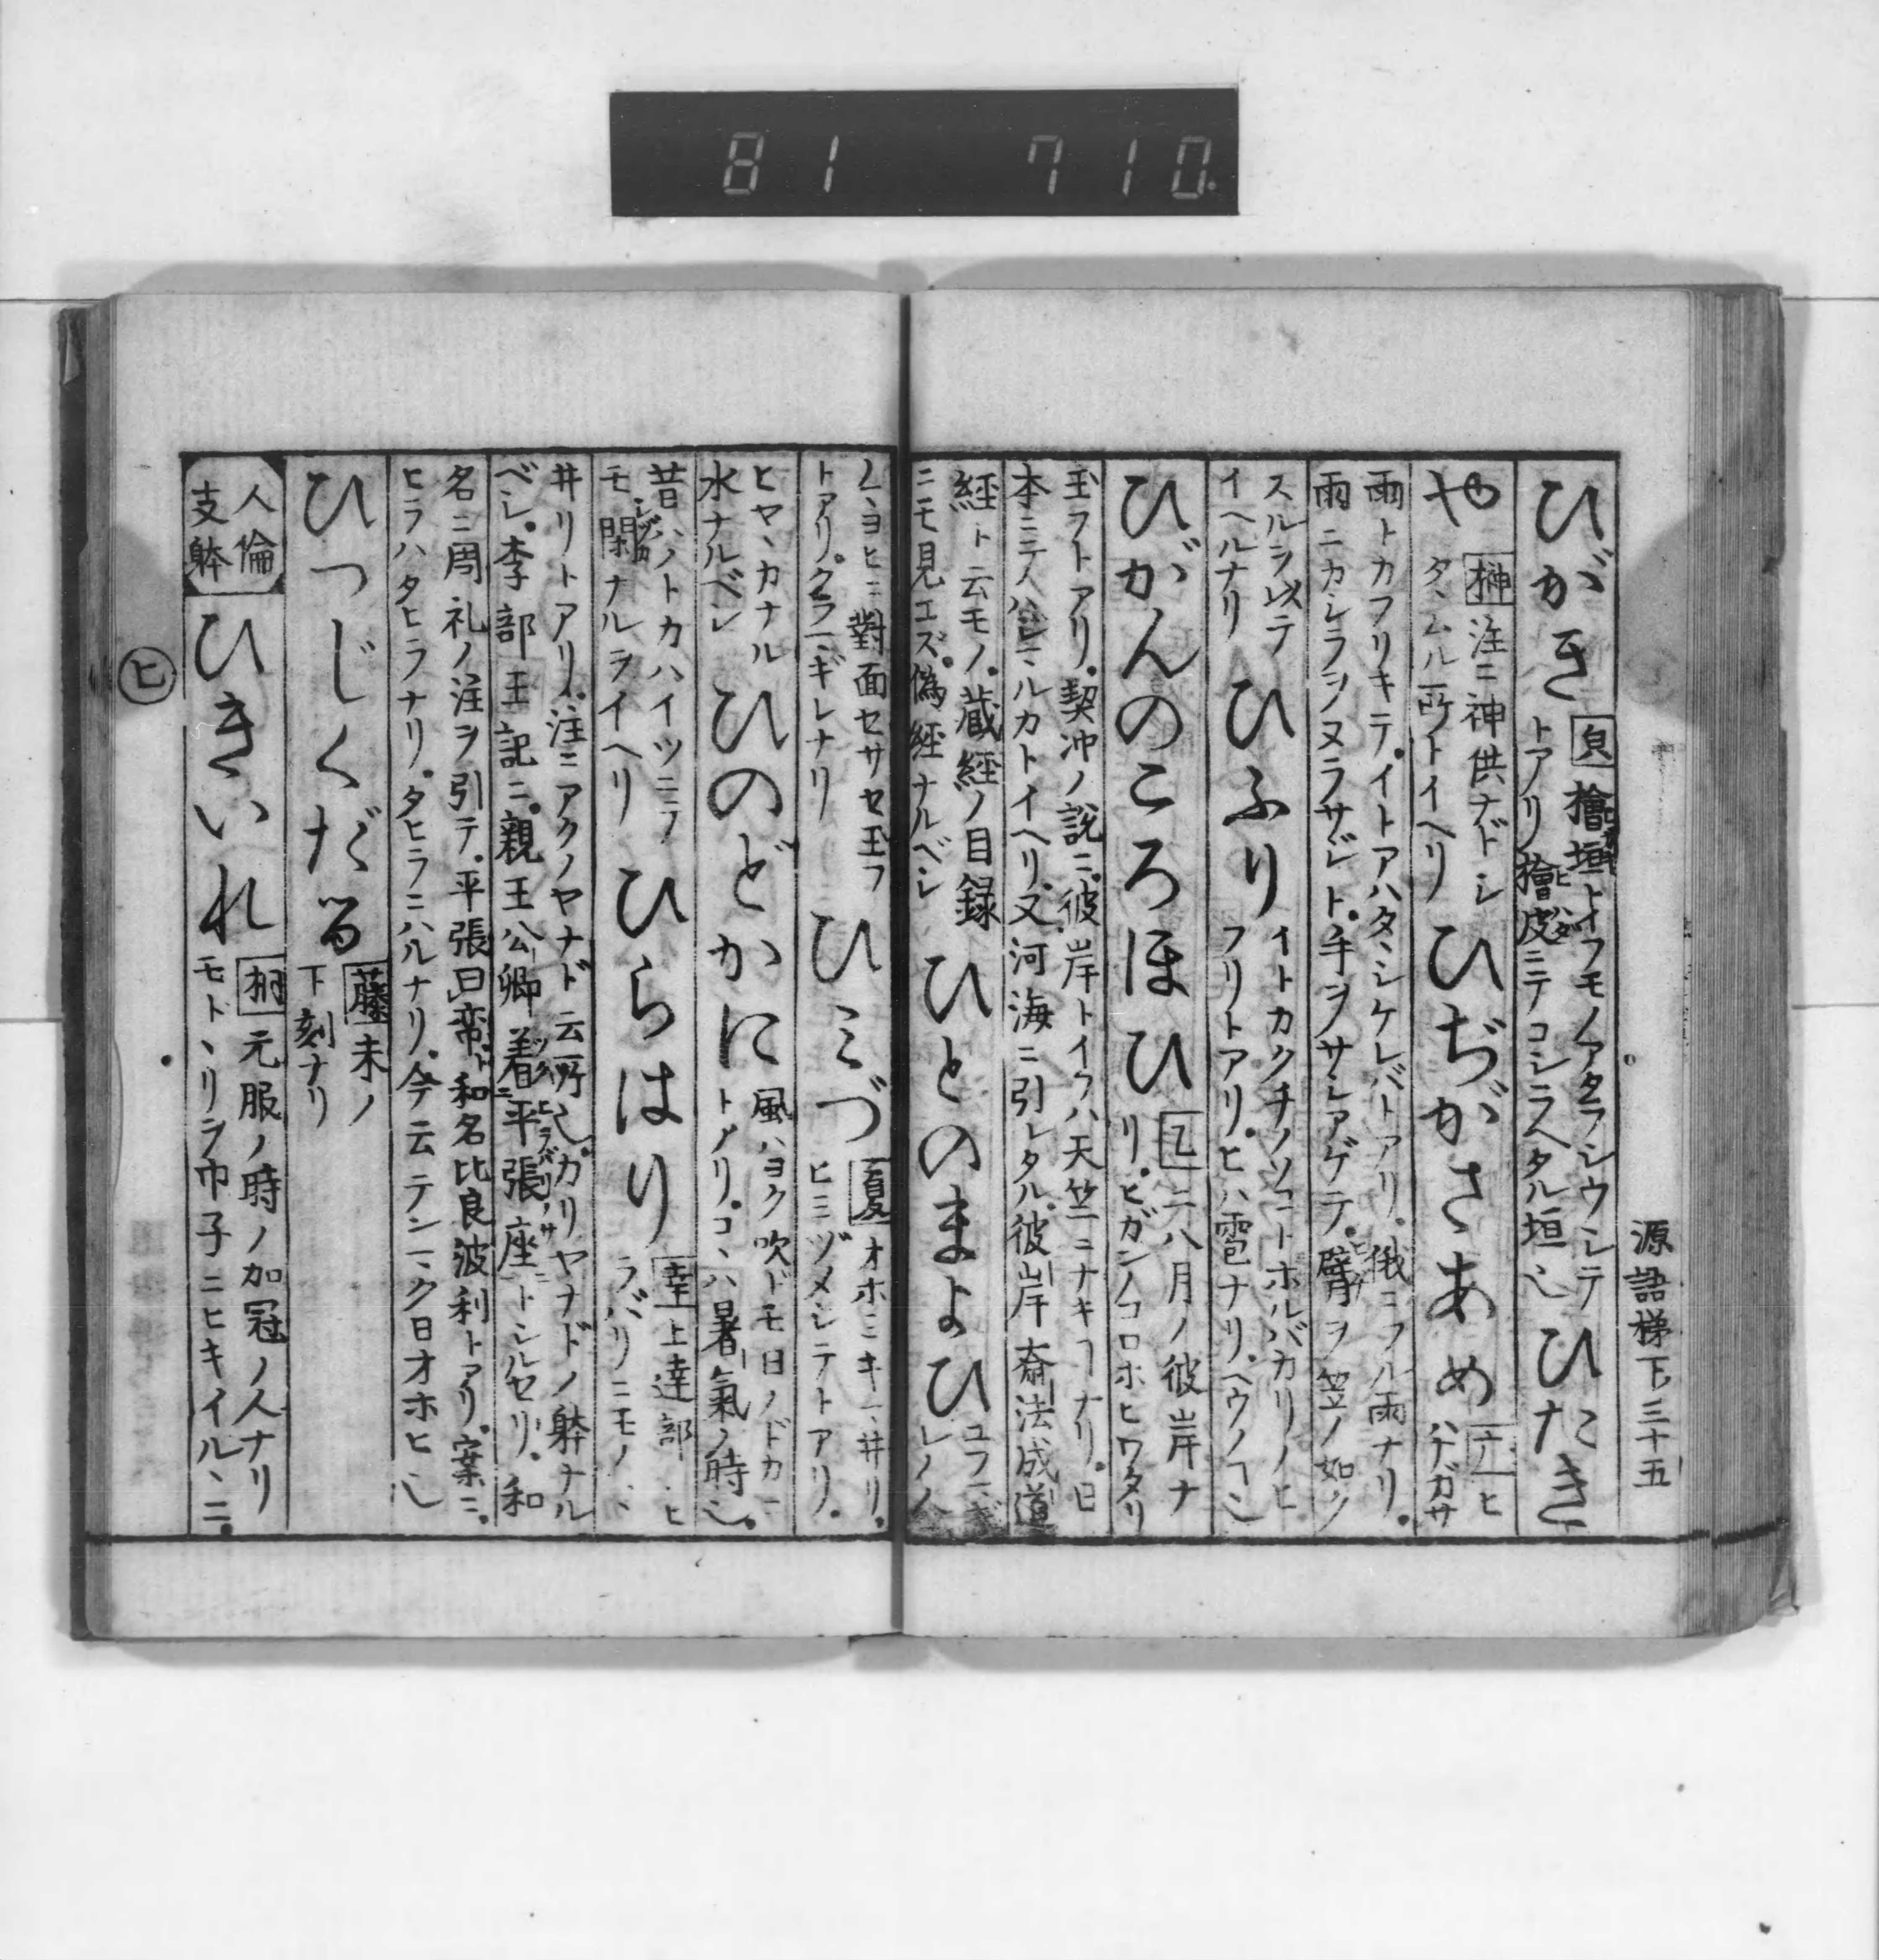 81 710
源語梯下 三十五
ひがき 㒵 檜垣トイフモノアタラシウシテ
トアリ檜皮ニテコシラヘタル垣也 ひたき
や 榊 注ニ神供ナドシ
タヽムル所トイヘリ ひぢがさあめ ヒ
ヂガサ
雨トカフリキテイトアハタヽシケレバトアリ俄ニフル雨ナリ
雨ニカシラヲヌラサジト手ヲサシアゲテ臂ヲ笠ノ如ク
スルヲ
イヘルナリ ひふり イトカクチノソコトホルバカリノヒ
フリトアリヒハ雹ナリヘウノ
ひがんのころほひ 乙 二八月ノ彼岸ナ
リヒガンノコロホヒワタリ
玉フトアリ契沖ノ説ニ彼岸トイフハ天竺ニナキナリ日
本ニテハルカトイヘリ又河海ニ引レタル彼岸斎法成道
経ト云モノ蔵経ノ目録
ニモ見エズ偽経ナルベシ ひとのまよひ ユフ
レノ
ヨヒニ對面セサセ玉フ
トアリクラマギレナリ ひみづ 夏 オホミキマ井リ
ヒミヅメシテトアリ
ヒヤヽカナル
水ナルベシ ひのどかに 風ハヨク吹ドモ日ノドカニ
トアリコヽハ暑氣ノ時也
昔ハノトカハイツニテ
モ閑ナルヲイヘリ ひらはり 上達部ヒ
ラバリニモノヽ
井リトアリ注ニアクノヤナド云所也カリヤナドノ躰ナル
ベシ李部王記ニ親王公卿着平張座トシルセリ和
名ニ周礼ノ注ヲ引テ平張曰帟和名比良波利トアリ案ニ
ヒラハタヒラナリタヒラニハルナリ今云テンマク日オホヒ也
ひつじくだる 藤 未ノ
下刻ナリ
人倫
支躰 ひきいれ 桐 元服ノ時ノ加冠ノ人ナリ
モトヽリヲ巾子ニヒキイルヽニ
ヒ